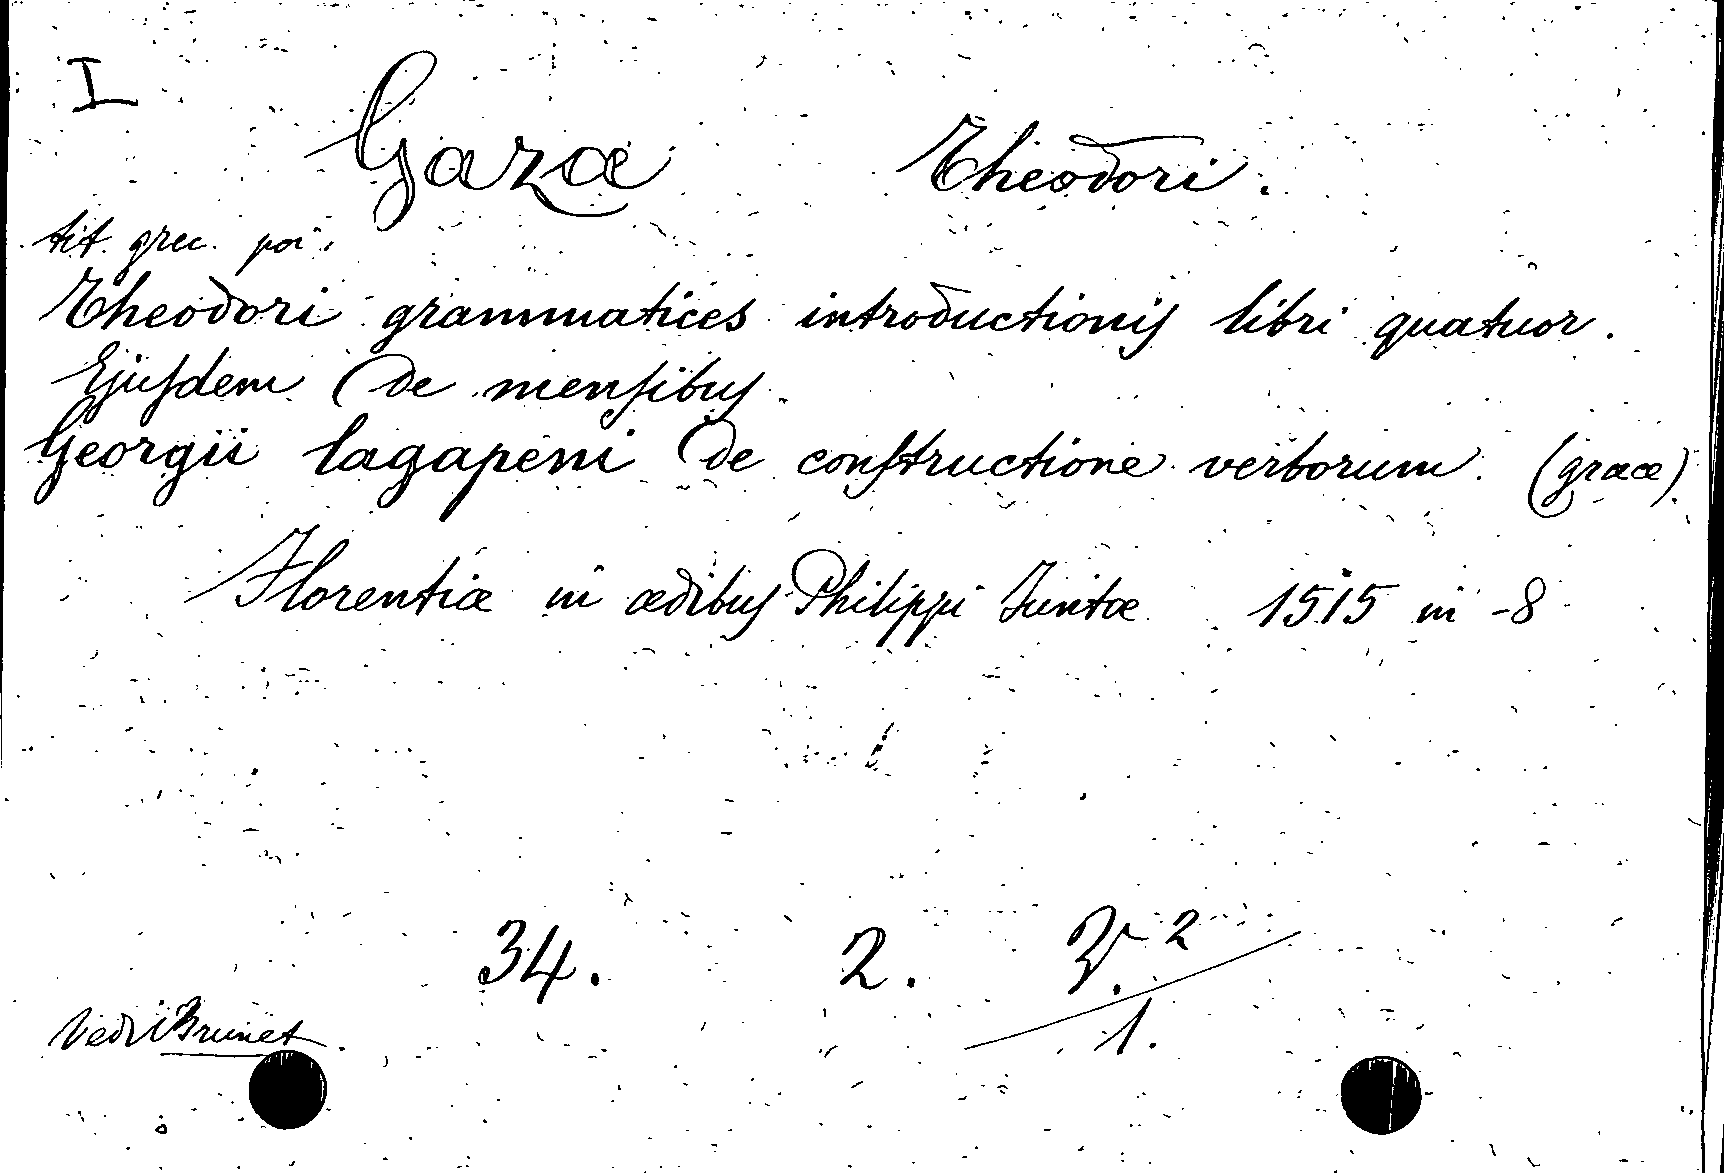 I
Gazæ Theodori.
tit. grec. poi:
Theodori grammatices introductionis libri quatuor.
Ejusdem De mensibus.
Georgii lagapeni De constructione verborum. (græce)
Florentiæ in ædibus Philippi Juntæ 1515 in -8
34. 2. V.2
1.
Vedi Brunet.